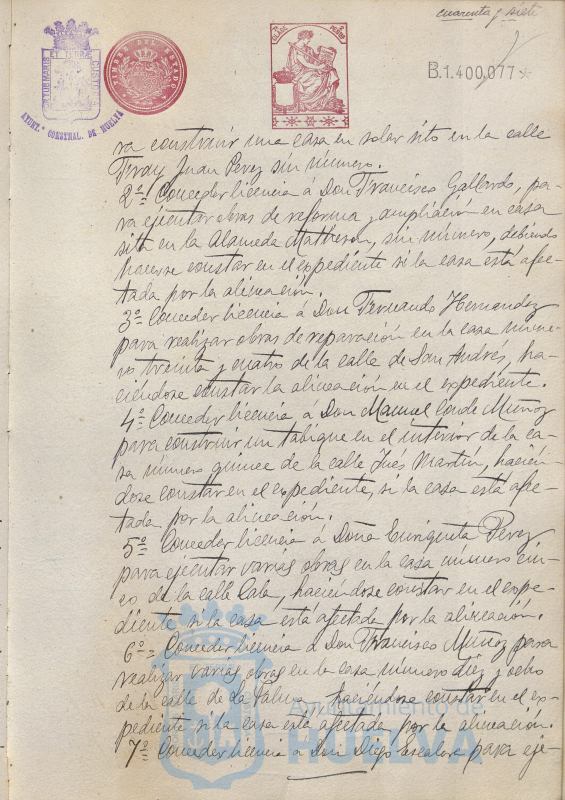 cuarenta y siete
PORTUS MARIS ET TERRAE CUSTODIA
AYUNT.º CONSTNAL. DE HUELVA
TIMBRE DEL ESTADO
B.1.400.077*
ra construir una casa en solar sito en la calle
Fray Juan Perez sin número.
2º= Conceder licencia á Don Francisco Gallardo, pa-
ra ejecutar obras de reforma y ampliación en casa
sita en la Alameda Matheson, sin número, debiendo
hacerse constar en el expediente si la casa está afec-
tada por la alineación.
3º= Conceder licencia á Don Fernando Hernandez
para realizar obras de reparación en la casa núme-
ro treinta y cuatro de la calle de San Andrés, ha-
ciéndose constar la alineación en el expediente.
4º= Conceder licencia á Don Manuel Conde Muñoz
para construir un tabique en el interior de la ca-
sa número quince de la calle Inés Martín, hacién-
dose constar en el expediente, si la casa está afec-
tada por la alineación.
5º= Conceder licencia á Doña Enriqueta Perez
para ejecutar varias obras en la casa número cin-
co de la calle Cala, haciéndose constar en el expe-
diente si la casa está afectada por la alineación.
6º= Conceder licencia á Don Francisco Muñoz para
realizar varias obras en la casa número diez y ocho
de la calle de La Palma, haciéndose constar en el ex-
pediente si la casa está afectada por la alineación.
7º= Conceder licencia á Don Diego Escalora para eje-
Ayuntamiento de
HUELVA